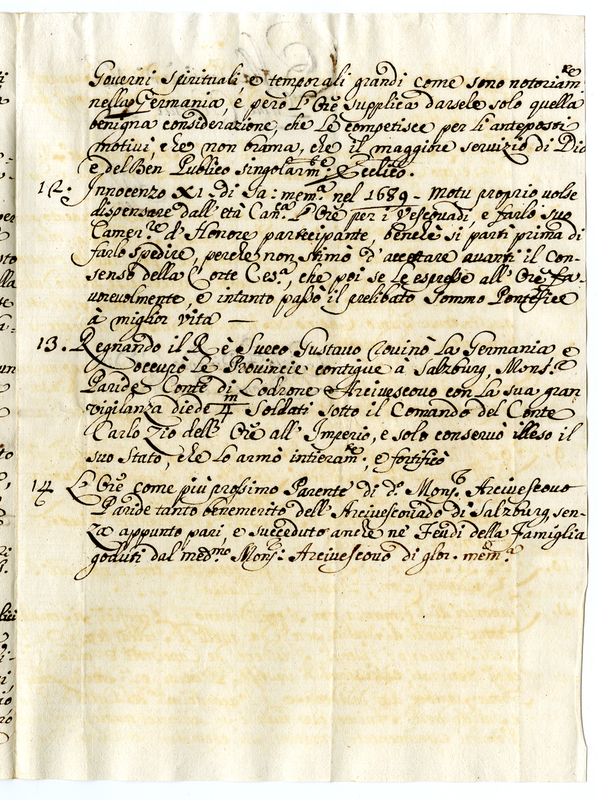 Governi spirituali, e temporali grandi come sono notoriam.te
nella Germania, e però L'Ore supplica darsele solo quella
benigna considerazione, che Le competisce per li anteposti
motivi, e che non brama, che il maggiore servizio di Dio
e del Ben Publico singolarm.te Ecclico.
12. Innocenzo XI. di Sa: mem.a nel 1689 - Motu proprio volse
dispensare dall'età Can.a L'Ore per i Vescovadi, e farlo suo
Camer.re d'Honore partecipante, benchè si partì prima di
farlo spedire, perche non stimò d'accettare avanti il Con-
senso della Corte Ces.a, che poi se le espresse all'Ore fa-
vorevolmente, e intanto passò il prelibato Sommo Pontefice
à miglior vita —
13. Regnando il Rè Sueco Gustavo rovinò La Germania e
occupò Le Provincie contigue a Salzburg, Mons.r
Paride Conte di Lodrone Arcivescovo con La sua gran
vigilanza diede 4/m Soldati sotto il Comando del Conte
Carlo Zio dell'Ore all'Imperio, e solo conservò illeso il
suo Stato, che Lo armò intieram.te, e fortificò
14 L'Ore come più prossimo Parente di d.o Mons.r Arcivescovo
Paride tanto benemerito dell'Arcivescovado di Salzburg, sen-
za appunto pari, e succeduto anche ne' Feudi della Famiglia
goduti dal med.mo Mons.r Arcivescovo di glor. mem.a